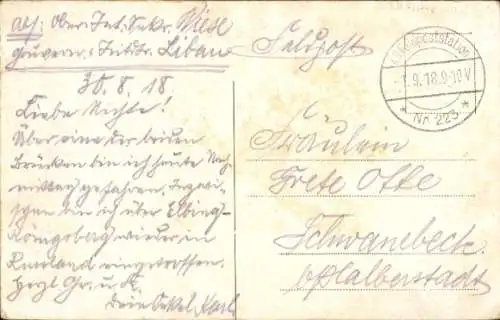 abs: Ober-Int. Sekr. Wiese
Gouvern.-Intdtr. Libau
Feldpost
Feldpoststation
1.9.18.9-10V
* Nr. 223 *
30.8.18
Liebe Nichte!
Über eine der beiden
Brücken bin ich heute Nach-
mittag gefahren. Inzwi-
schen bin ich über Elbing-
Königsberg wieder in
Kurland eingetroffen.
Herzl. Gr. u. K.
Dein Onkel Karl
Fräulein
Grete Otte
Schwanebeck
b/Halberstadt